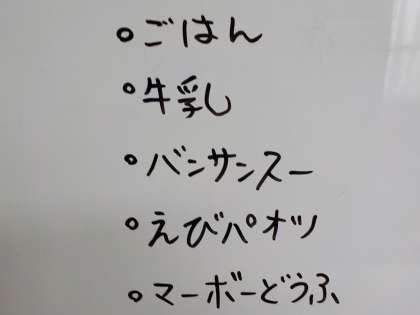 ○ごはん
○牛乳
○バンサンスー
○えびパオツ
○マーボーどうふ